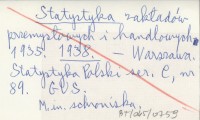 Statystyka zakładów
przemysłowych i handlowych
1935. 1938. — Warszawa.
Statystyka Polski ser. C, nr
89. GUS
M. in. schroniska.
AT/065/0759